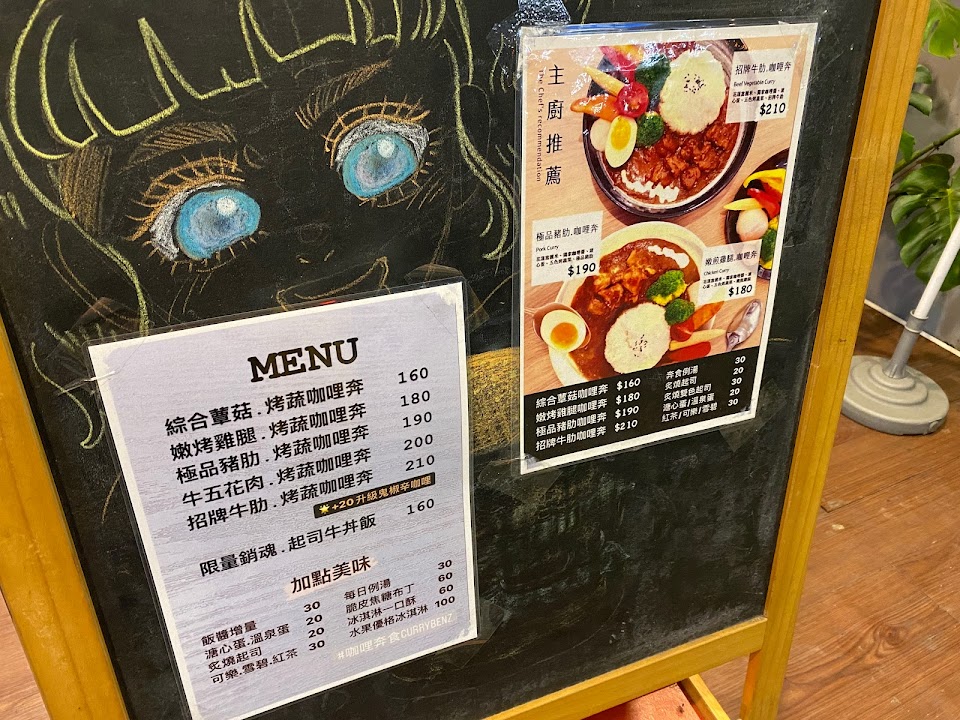 MENU
綜合蕈菇.烤蔬咖哩奔 160
嫩烤雞腿.烤蔬咖哩奔 180
極品豬肋.烤蔬咖哩奔 190
牛五花肉.烤蔬咖哩奔 200
招牌牛肋.烤蔬咖哩奔 210
+20升級鬼椒辛咖哩
限量銷魂.起司牛丼飯 160
加點美味
飯醬增量 30
溏心蛋.溫泉蛋 20
炙燒起司 20
可樂.雪碧.紅茶 30
每日例湯 30
脆皮焦糖布丁 60
冰淇淋一口酥 60
水果優格冰淇淋 100
#咖哩奔食CURRYBENZ
主廚推薦
The Chef's recommendation
招牌牛肋.咖哩奔
Beef Vegetable Curry
$210
極品豬肋.咖哩奔
Pork Curry
$190
嫩煎雞腿.咖哩奔
Chicken Curry
$180
綜合蕈菇咖哩奔 $160
嫩烤雞腿咖哩奔 $180
極品豬肋咖哩奔 $190
招牌牛肋咖哩奔 $210
奔食例湯 30
炙燒起司 20
炙燒雙色起司 30
溏心蛋/溫泉蛋 20
紅茶/可樂/雪碧 30